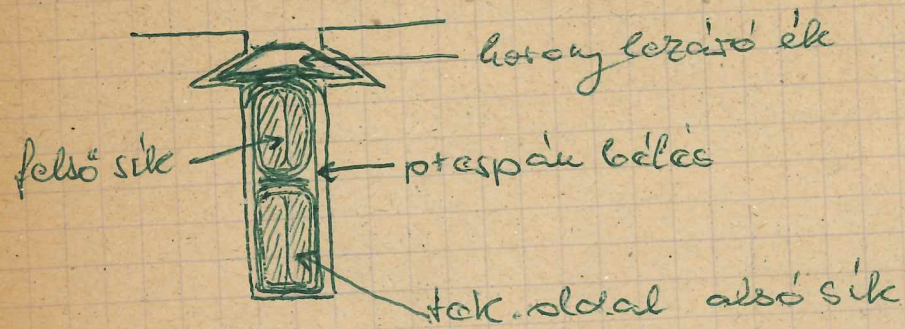 horony lezáró ék
felső sík
prespán bélés
tek. oldal alsó sík